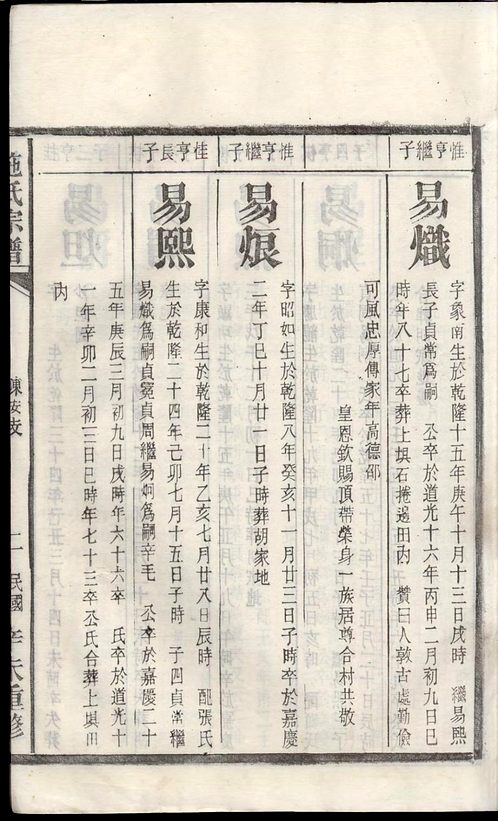 惟亨繼子
易熾
字象南生於乾隆十五年庚午十月十三日戌時 繼易熙
長子貞常爲嗣 公卒於道光十六年丙申二月初九日巳
時年八十七卒葬上垻石捲邊田內 贊曰人敦古處勤儉
可風忠厚傳家年高德邵
皇恩欽賜頂帶榮身一族居尊合村共敬
惟亨繼子
易烺
字昭如生於乾隆八年癸亥十一月廿三日子時卒於嘉慶
二年丁巳十月廿一日子時葬胡家地
惟亨長子
易熙
字康和生於乾隆二十年乙亥七月廿八日辰時 配張氏
生於乾隆二十四年己卯七月十五日子時 子四貞常繼
易熾爲嗣貞冕貞周繼易炯爲嗣辛毛 公卒於嘉慶二十
五年庚辰三月初九日戌時年六十六卒 氏卒於道光十
一年辛卯二月初三日巳時年七十三卒公氏合葬上垻田
內
施氏宗譜
陳安支
二
民國辛未重修